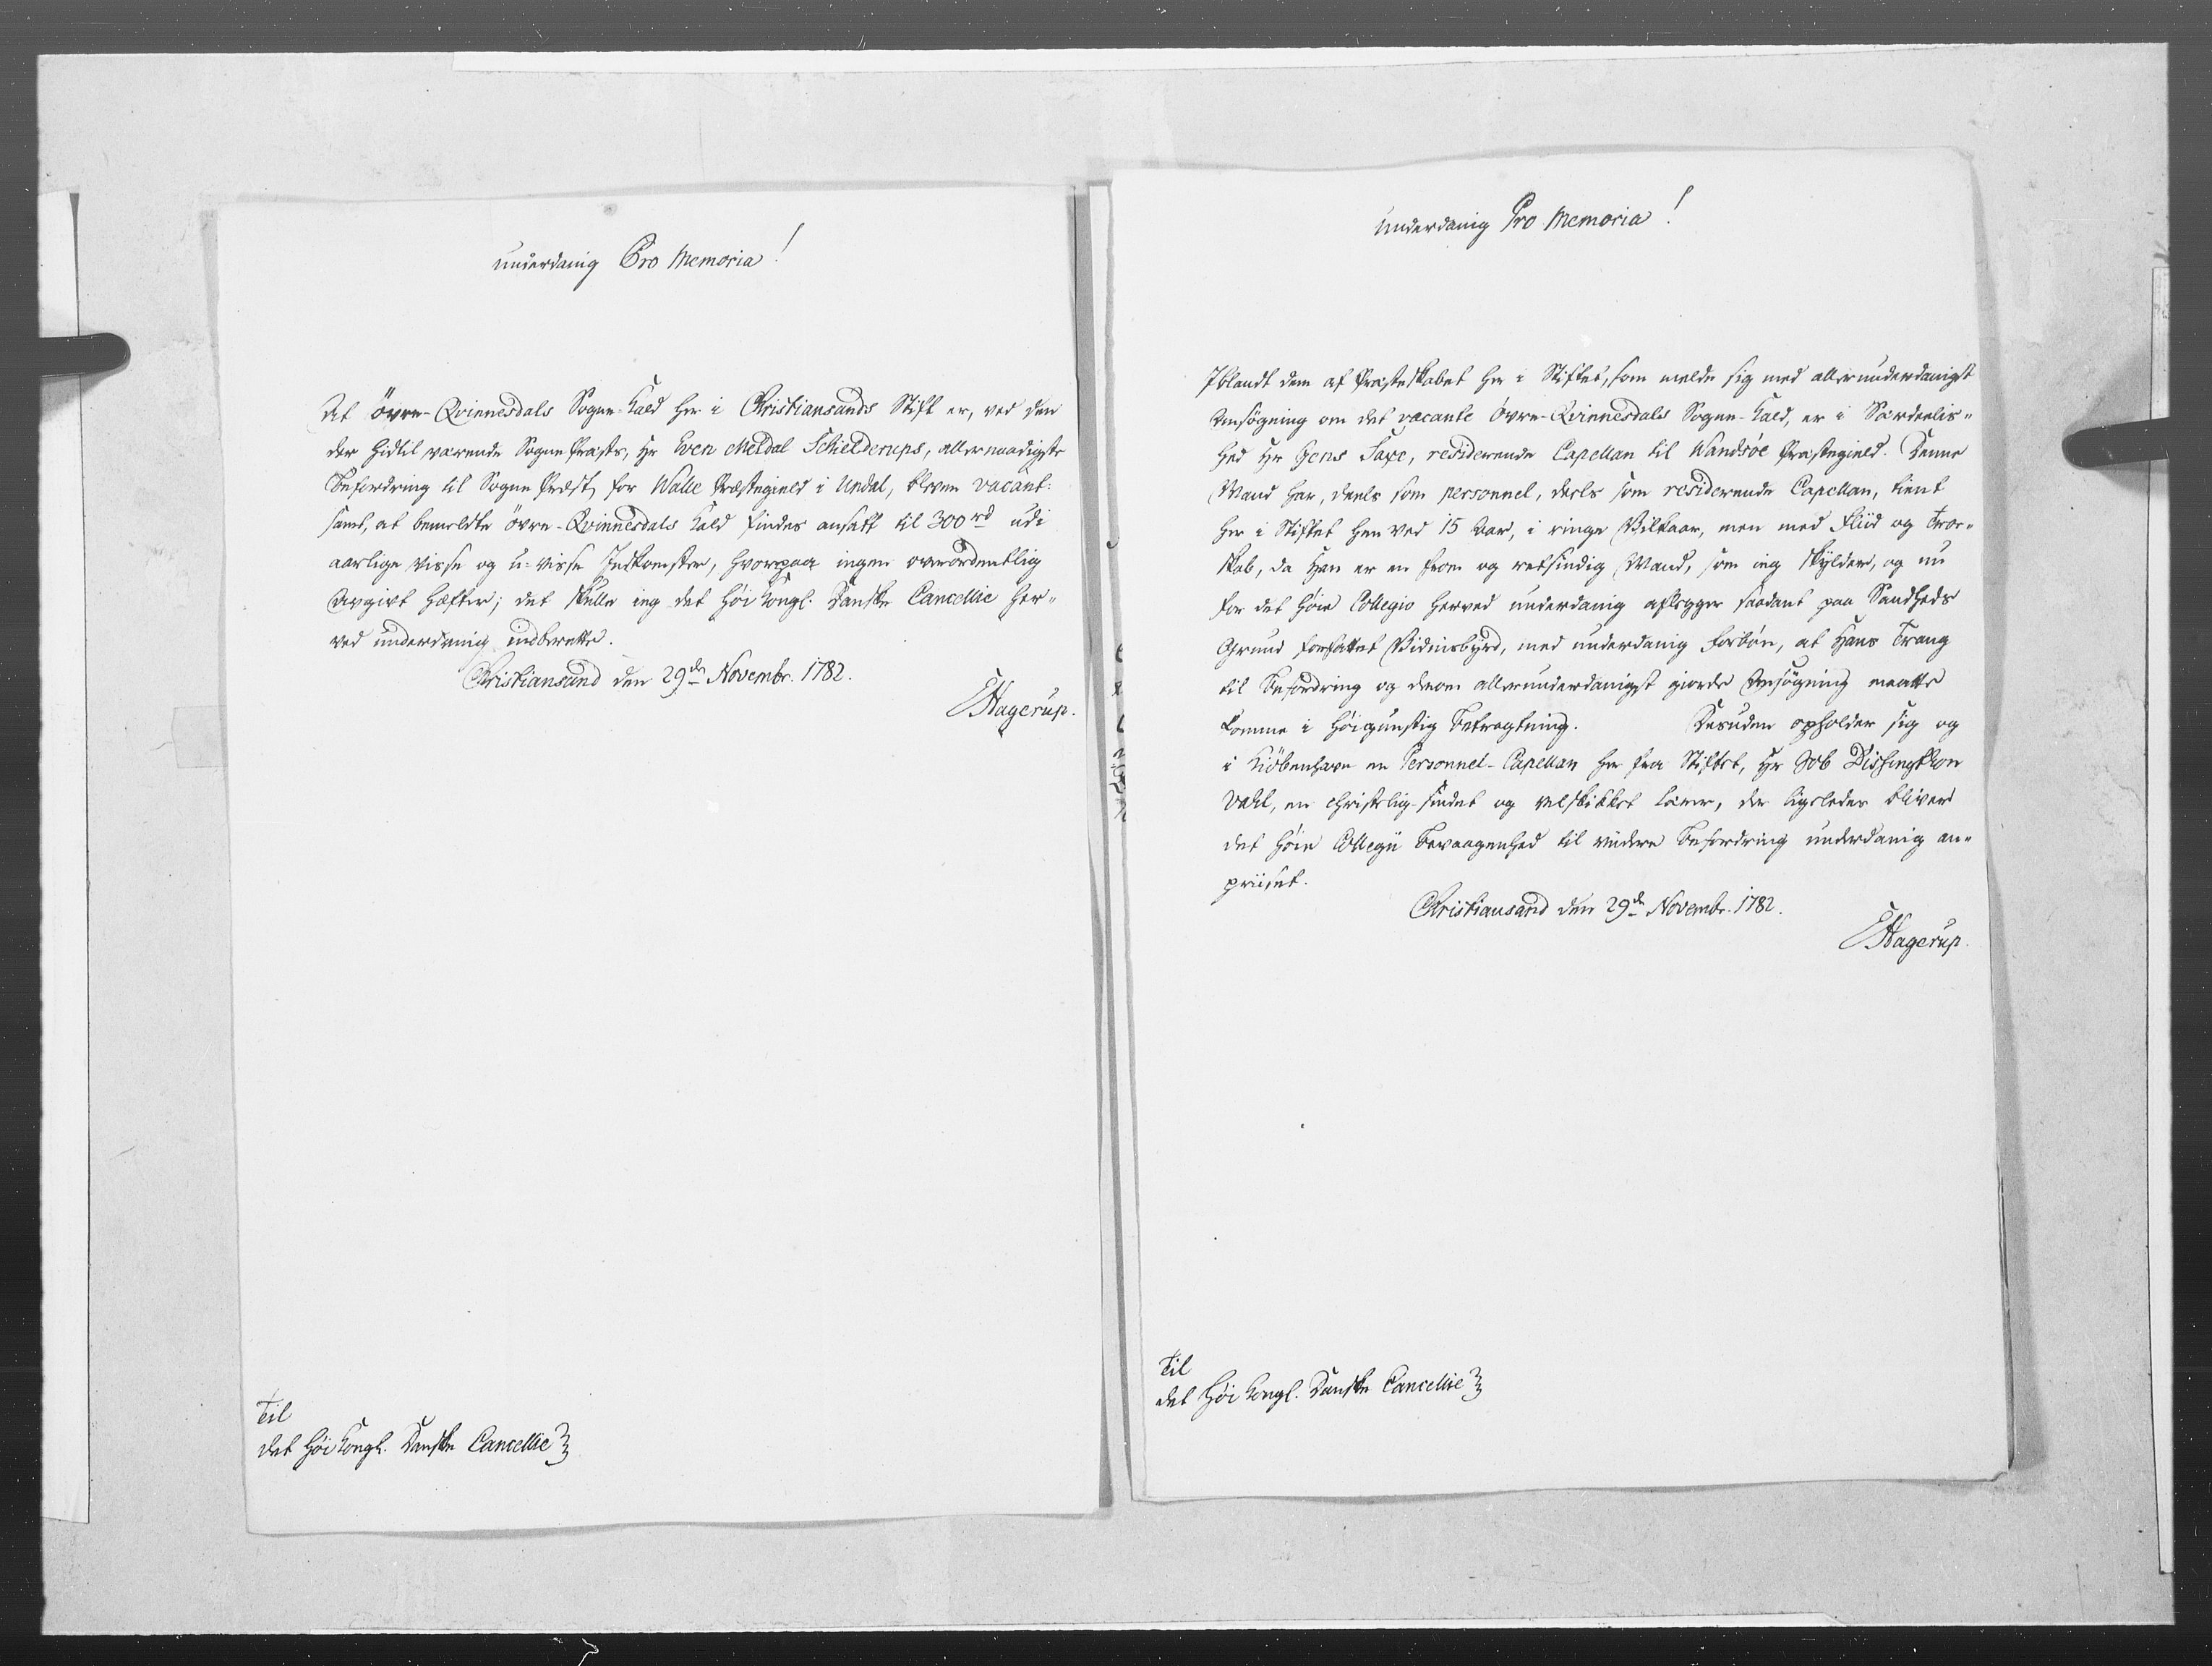 underdanig Pro Memoria!
At Övre-Qvinnesdals Sogne-Kald her i Christiansands Stift er, ved den
der hidtil værende Sogne Præsts, Hr Even Meldal Schielderups, allernaadigste
Befordring til Sogne Præst for Walle Præstegield i Undal, bleven vacant:
samt, at bemeldte Övre-Qvinnesdals Kald findes ansatt til 300 rd udi
aarlige visse og u-visse Indkomster, hvorpaa ingen overordentlig
Avgivt hæfter; det skulle ieg det Høi Kongl. Danske Cancellie her-
ved underdanig indberette.
Christiansand den 29de Novembr. 1782.
EHagerup.
Til
det Høi Kongl. Danske Cancellie
underdanig Pro Memoria!
Iblandt dem af Præsteskabet her i Stiftet, som melde sig med allerunderdanigst
Ansögning om det vacante Övre-Qvinnesdals Sogne-Kald, er i Særdeelis-
hed Hr Jens Saxe, residerende Capellan til Wandsöe Præstegield. Denne
Mand har, deels som personnel, deels som residerende Capellan, tient
her i Stiftet hen ved 15 Aar, i ringe Vilkaar, men med Fliid og Troe-
skab, da Han er en from og retsindig Mand, som ieg skylder, og nu
for det høie Collegio herved underdanig aflegger saadant paa Sandheds
Grund forfattet Vidnisbyrd, med underdanig Forbön, at Hans Trang
til Befordring og derom allerunderdanigst giorde Ansögning maatte
komme i höigunstig Betragtning. Desuden opholder sig og
i Kiöbenhavn en Personnel-Capellan her fra Stiftet, Hr Job Dishingthon
Vahl, en christelig-sindet og velskikket Lærer, der ligeledes bliver
det höie Collegii Bevaagenhed til viidere Befordring underdanig an-
priiset.
Christiansand den 29de Novembr. 1782.
EHagerup.
Til
det Høi Kongl. Danske Cancellie